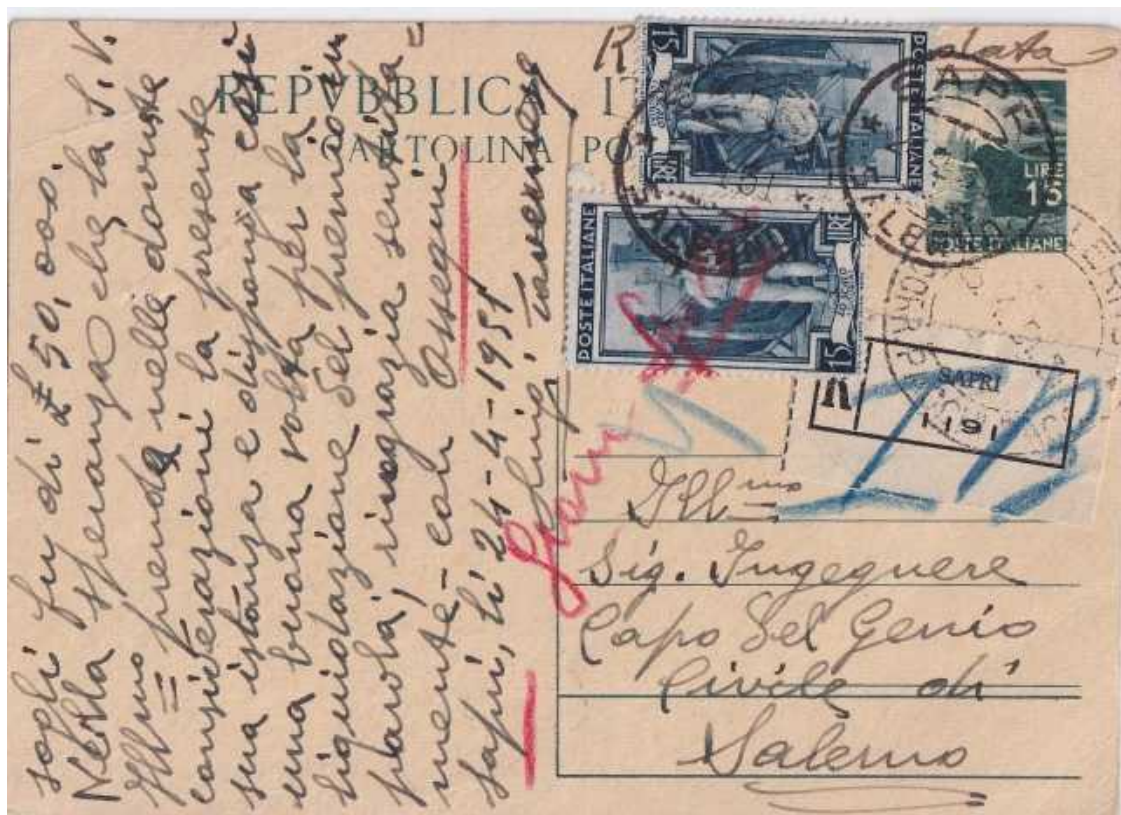 REPVBBLICA IT
CARTOLINA PO
R
lata
15
LIRE
POSTE ITALIANE
POSTE ITALIANE
LIRE
15
LIRE
15
POSTE ITALIANE
R
SAPRI
1191
Ill.mo
Sig. Ingegnere
Capo del Genio
Civile di
Salerno
sogli fu di £ 50,000.
Nella speranza che la S.V.
Ill.mo prenda nelle dovute
considerazioni la presente
sua istanza e disponga così
una buona volta per la
liquidazione del premio in
parola, ringrazia sentita=
mente- con ossequi
Sapri, lì 24-4-1951
Luigi